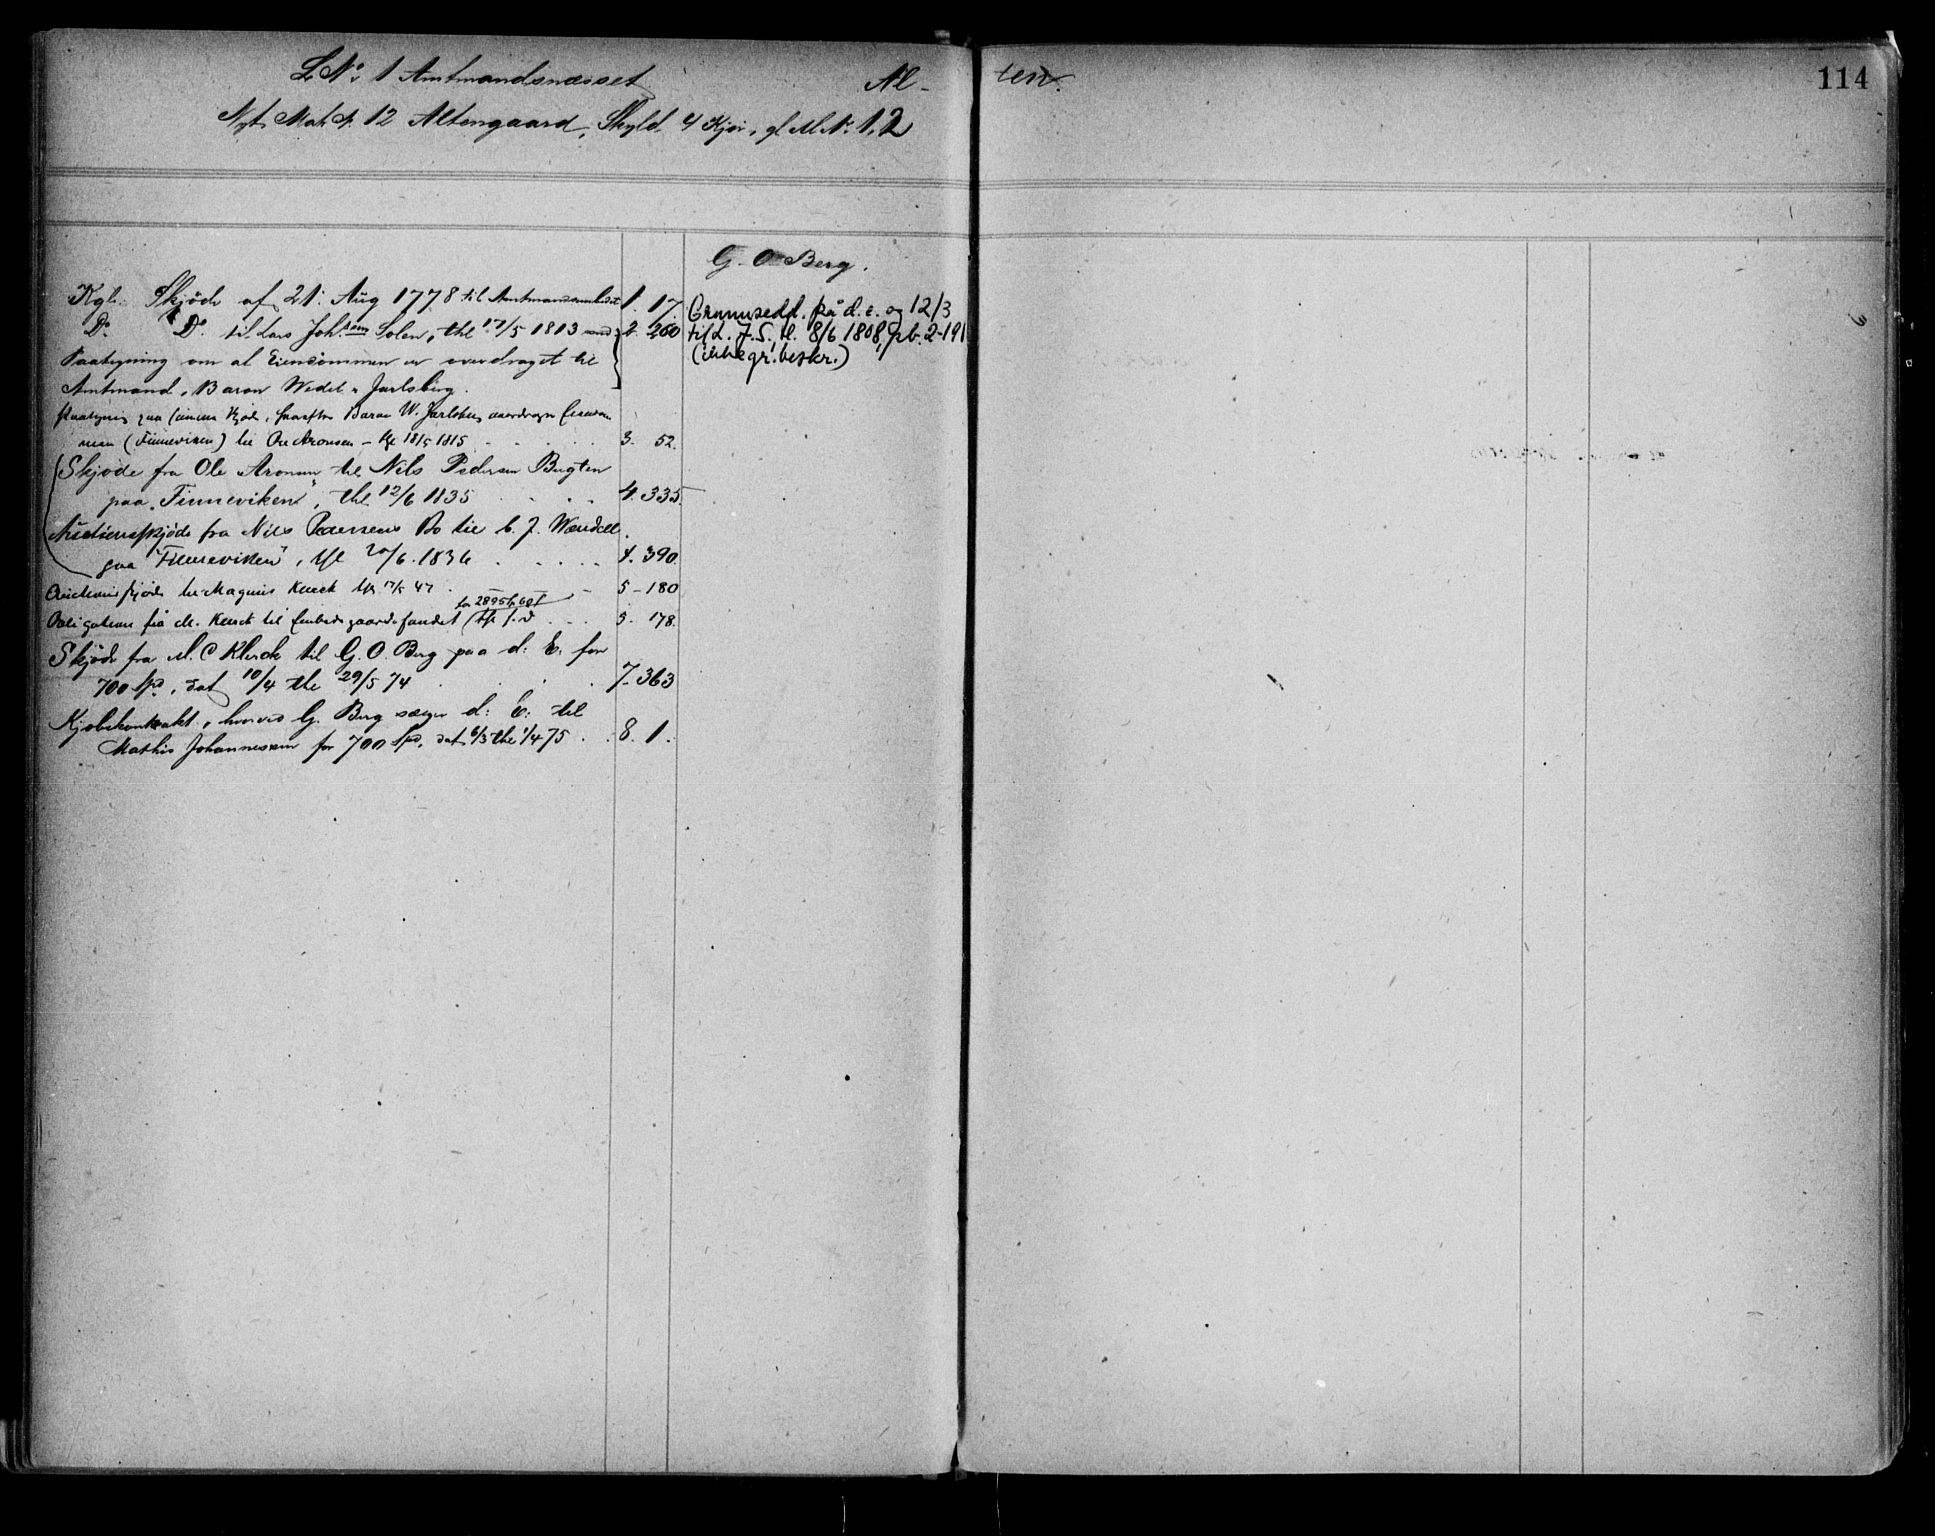 L. No. 1 Amtmandsnæsset Al- ten. 114
Nyt Matr. N. 12 Altengaard, Skyld 4 Kjør, gl. M. No. 1,2
G. O. Berg.
Kgl. Skjøde af 21: Aug 1778 til Amtmandsembedet 1. 17.
Do. Do. til Lars Joh.sen Solen, thl 17/5 1813 med 2. 260
Paategning om at Eiendommen er overdraget til
Amtmand, Baron Wedel Jarlsberg.
Paategning paa samme Skjøde, hvorefter Baron W. Jarlsberg overdrager Eiendom
men (Finneviken) til Ole Aronsen - thl 18/5 1815 3. 52.
Skjøde fra Ole Aronsen til Nils Pedersen Bugten
paa "Finneviken", thl 12/6 1835 4. 335.
Auctionsskjøde fra Nils Pedersens Bo til C. J. Wændell
paa "Finneviken", thl 20/6. 1836 4. 390
Auctionsskjøde til Magnus Klerck thl 17/5 47 5 - 180
for 2895
Obligation fra M. Klerck til Embedsgaardsfondet thl s. d 5. 178.
Skjøde fra M. C Klerck til G. O. Berg paa d: E: for
700 Spd, dat 10/4 thl 29/5 74 7. 363
Kjøbekontrakt, hvorved G. Berg sælger d: E: til
Mathis Johannessen for 700 Spd, dat 6/3 thl 1/4 75 8. 1.
Grunnsedd. på d. e. og 12/3
tils. J. S. tl. 8/6 1808, pb. 2-191
(ikke gr. beskr.)